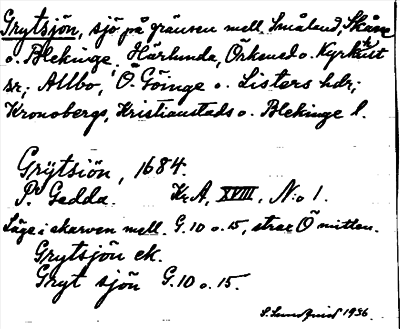 Grytsjön, sjö på gränsen mell. Småland, Skåne
o. Blekinge. Härlunda, Örkened o. Kyrkhult
snr; Allbo, Ö. Göinge o. Listers hdr;
Kronobergs, Kristianstads o. Blekinge l.
Grÿtsiön, 1684.
Pr Gedda. Kr.A, XVIII, N:o 1.
Läge i skarven mell. G. 10 o. 15, strax Ö mitten.
Grytsjön ek.
Gryt sjön G. 10 o. 15.
1936